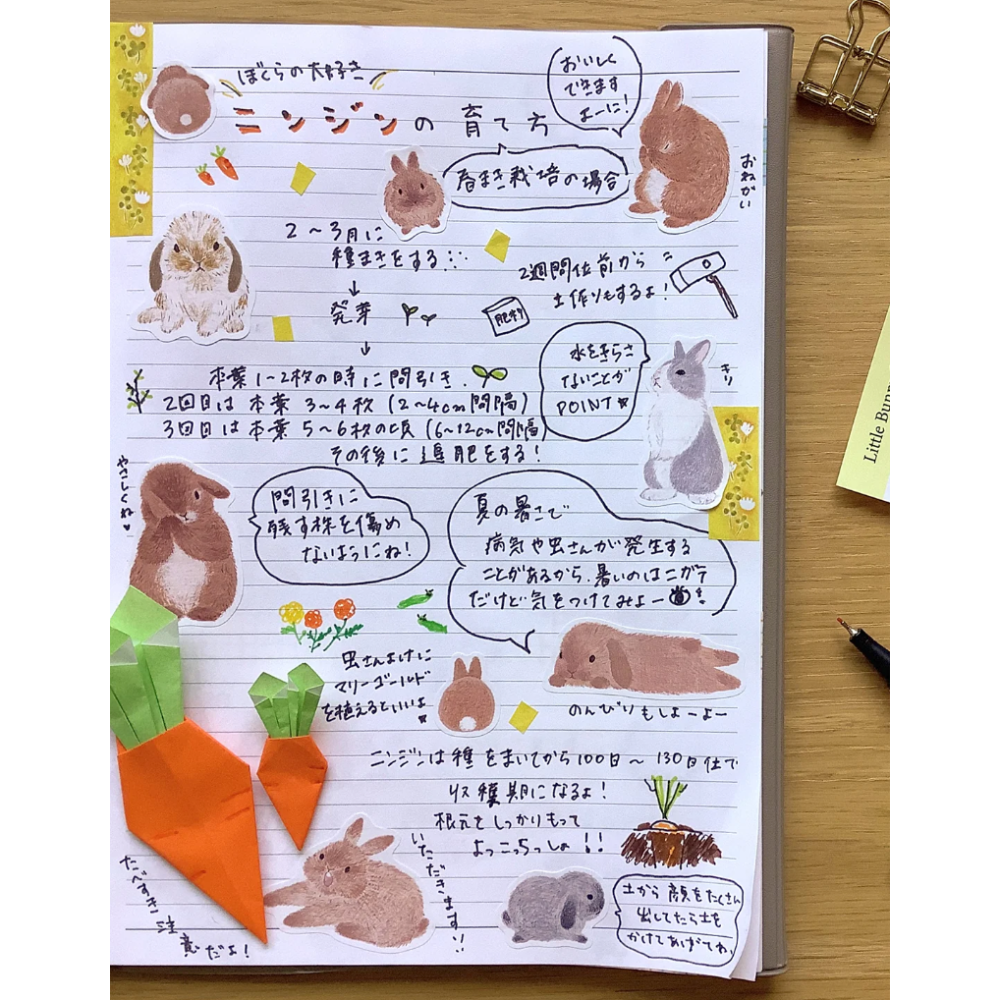 ぼくらの大好き
ニンジンの育て方
おいしく
できます
よーに!
おねがい
春まき栽培の場合
2〜3月に
種まきをする
↓
発芽
↓
2週間位前から
土作りもするよ!
肥料
水をきらさ
ないことが
POINT
キリ
本葉1〜2枚の時に間引き.
2回目は本葉3〜4枚(2〜4cm間隔)
3回目は本葉5〜6枚の頃(6〜12cm間隔)
その後に追肥をする!
Little Bunn
やさしくね♥
間引きに
残す株を傷め
ないようにね!
夏の暑さで
病気や虫さんが発生する
ことがあるから、暑いのはニガテ
だけど気をつけてみよー!
虫さんよけに
マリーゴールド
を植えるといいよ
のんびりもしよーよー
ニンジンは種をまいてから100日〜130日位で
収穫期になるよ!
根元をしっかりもって
よっこらっしょ!!
たべすぎ注意だよ!
いただきます!!
土から顔をたくさん
出してたら土を
かけてあげてね